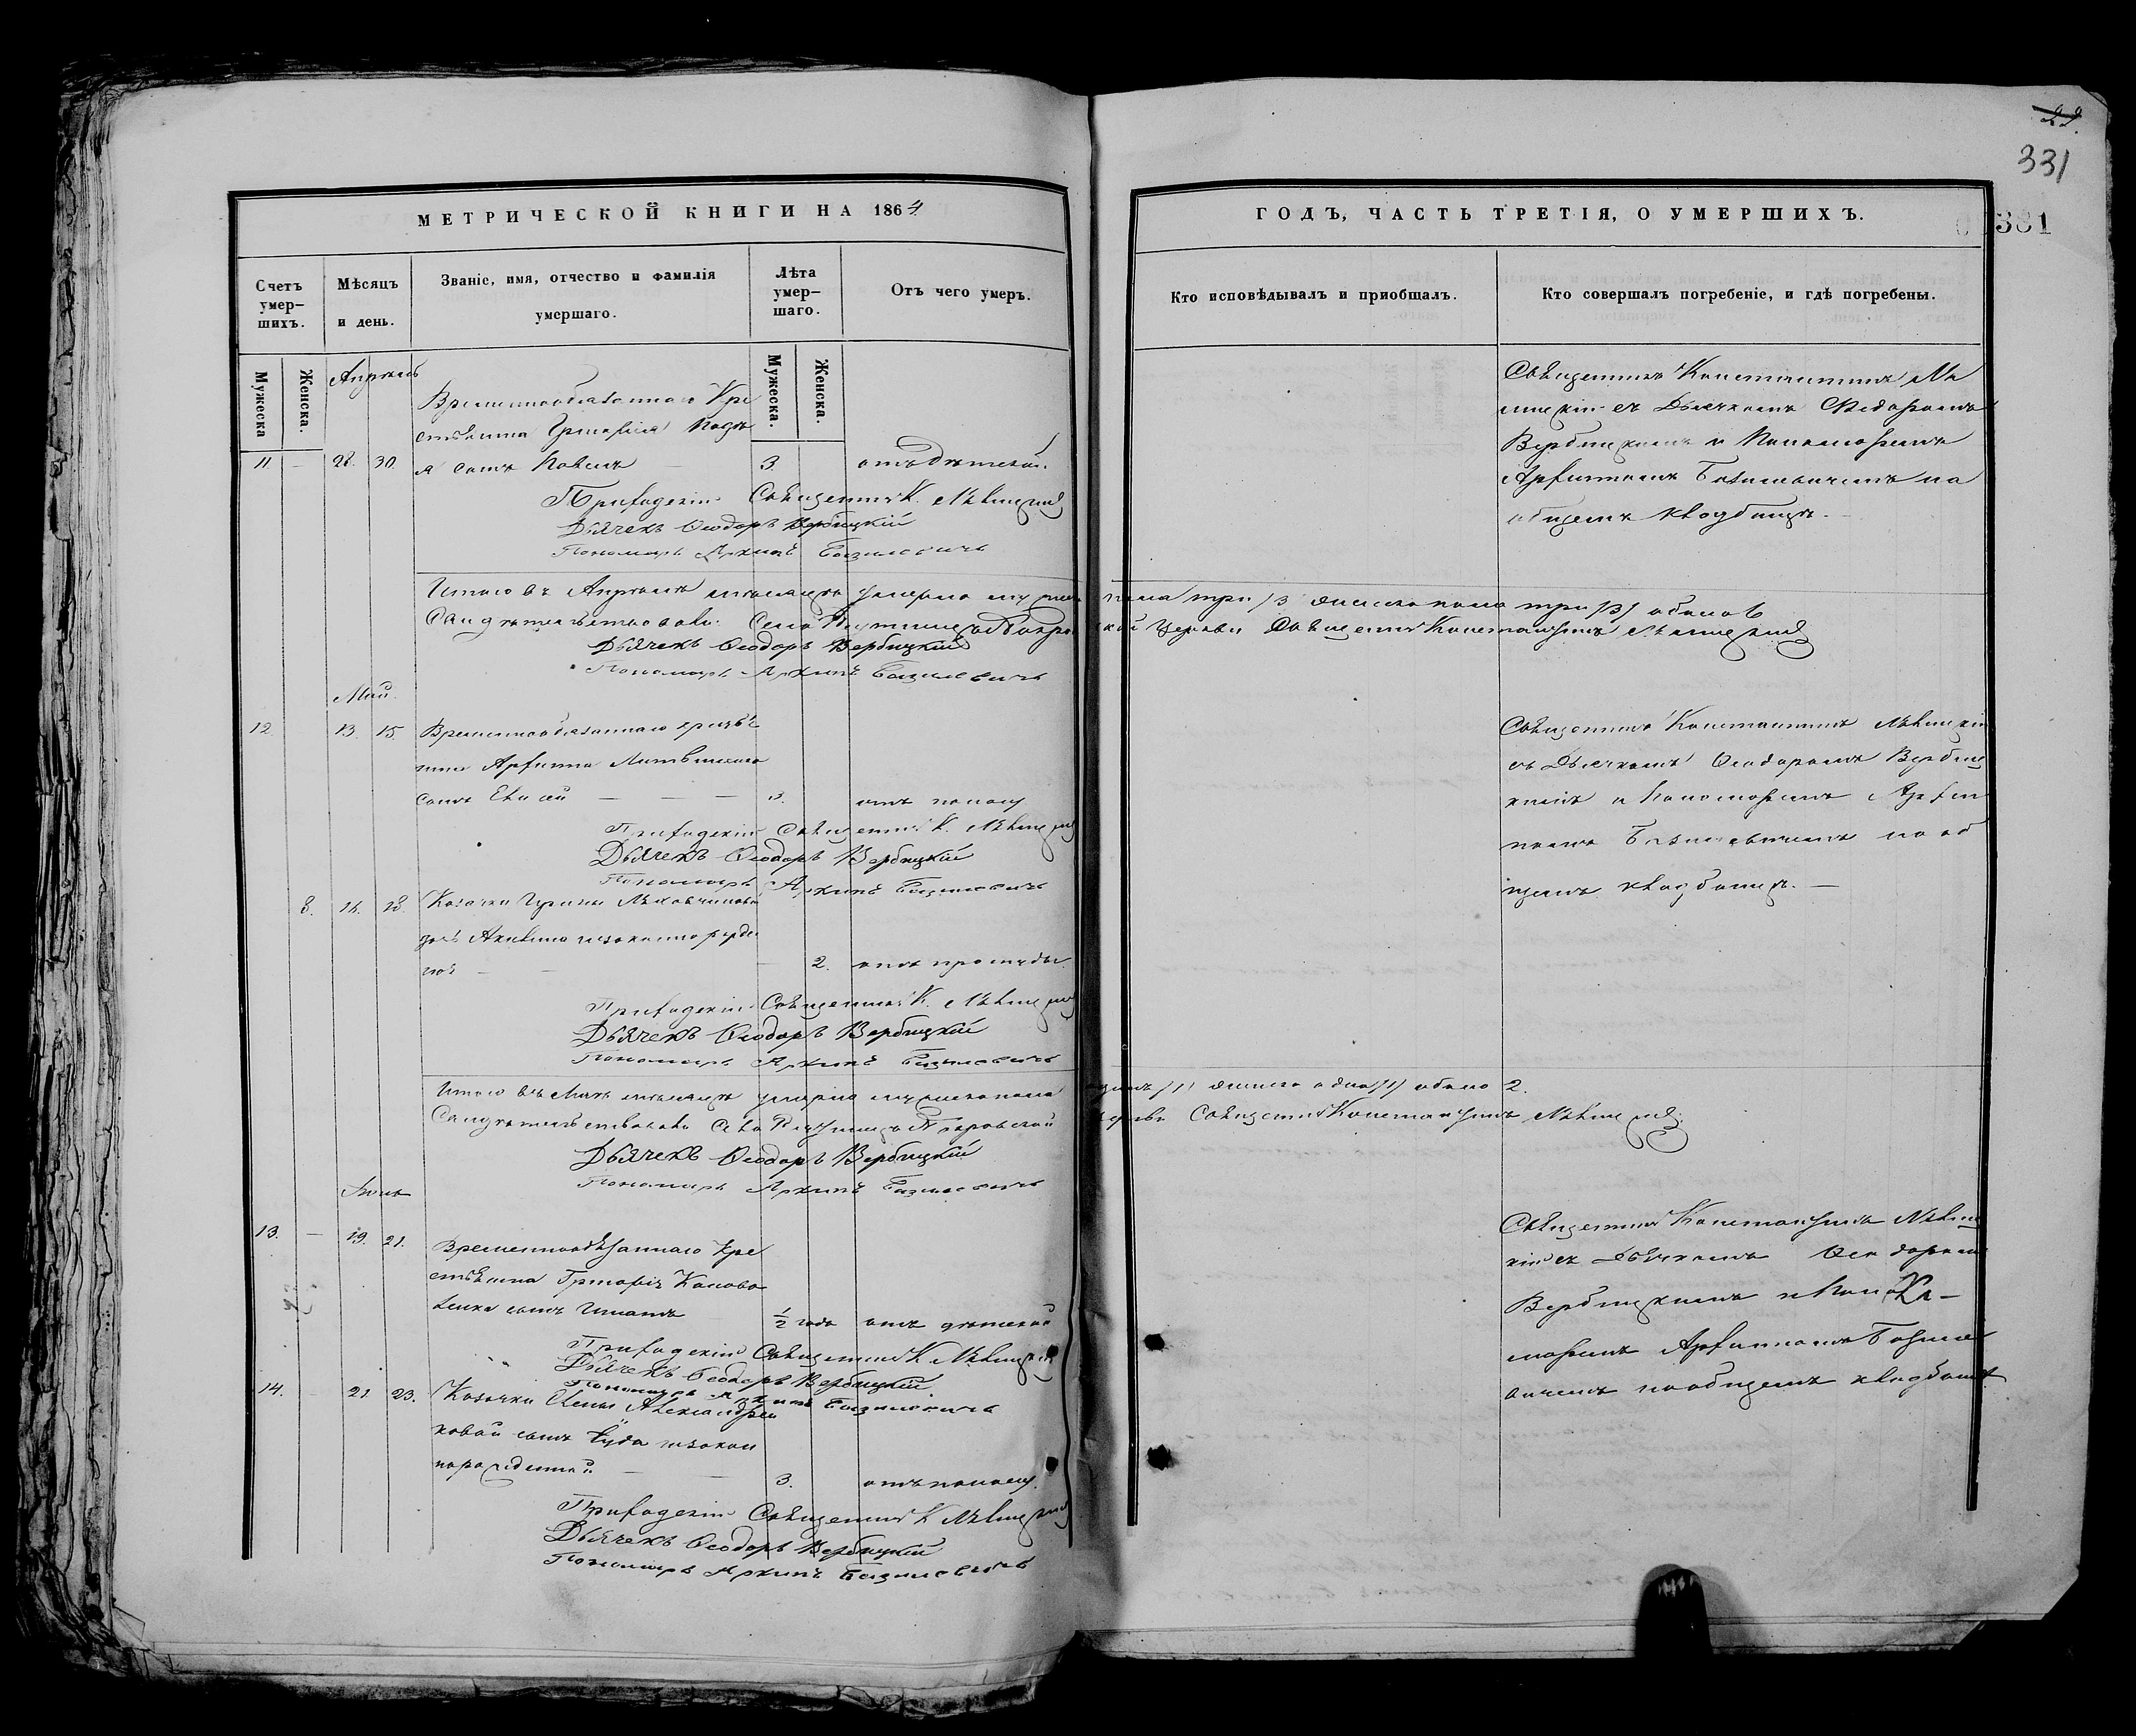 22.
331
МЕТРИЧЕСКОЙ КНИГИ НА 1864
ГОДЪ, ЧАСТЬ ТРЕТІЯ, О УМЕРШИХЪ.
381
Счетъ умер-
шихъ.
Мѣсяцъ
и день.
Званіе, имя, отчество и фамилія
умершаго.
Лѣта
умер-
шаго.
Отъ чего умеръ.
Кто исповѣдывалъ и пріобщалъ.
Кто совершалъ погребеніе, и гдѣ погребены.
Мужеска
Женска.
Мужеска.
Женска.
Апрѣль
Временнообязаннаго Кре
стьянина Григорія
11 – 28. 30. сынъ Павелъ 3. отъ дѣтской.
Приходскій Священникъ К. Лѣвицкій
Дьячекъ Ѳеодоръ Вербицкій
Пономарь Архипъ Базилевичъ
Священникъ Константинъ Лѣ
вицкій съ Дьячкомъ Ѳедоромъ
Вербицкимъ и Пономаремъ
Архипомъ Базилевичемъ на
общемъ кладбищѣ.
Итого въ Апрѣлѣ мѣсяцѣ умерло мужеска пола три /3/ женска пола три /3/ обоего 6
Свидѣтельствовали: Села Покровской Церкви Священникъ Константинъ Лѣвицкій
Дьячекъ Ѳеодоръ Вербицкій
Пономарь Архипъ Базилевичъ
Май.
12 13. 15. Временнообязаннаго крестья
нина Архипа Литвиненка
сынъ Евсей – – – 3. отъ поносу
Приходскій Священникъ К. Лѣвицкій
Дьячекъ Ѳеодоръ Вербицкій
Пономарь Архипъ Базилевичъ
Священникъ Константинъ Лѣвицкій
съ Дьячкомъ Ѳеодоромъ Вербиц
кимъ и Пономаремъ Архи
помъ Базилевичемъ на об
щемъ кладбищѣ. –
8. 16. 18. Козачки
дочь незаконнорожден
ная – – 2. отъ простуды.
Приходскій Священникъ К. Лѣвицкій
Дьячекъ Ѳеодоръ Вербицкій
Пономарь Архипъ Базилевичъ
Итого въ Маѣ мѣсяцѣ умерло мужеска пола одинъ /1/ женска одна /1/ обоего 2.
Свидѣтельствовали: Села Покровской Церкви Священникъ Константинъ Лѣвицкій
Дьячекъ Ѳеодоръ Вербицкій
Пономарь Архипъ Базилевичъ
Іюнь
13. – 19. 21. Временнообязаннаго Кре
стьянина Григорія Конова
ленка сынъ Игнатъ ½ года отъ дѣтской
Приходскій Священникъ К. Лѣвицкій
Дьячекъ Ѳеодоръ Вербицкій
Пономарь Архипъ Базилевичъ
Священникъ Константинъ Лѣвиц
кій съ Дьячкомъ Ѳеодоромъ
Вербицкимъ и Поно
маремъ Архипомъ Базиле
вичемъ на общемъ кладбищѣ
14. 21 23. Козачки Елены Александрен
ковой сынъ Іуда незакон
норожденный – – 3. отъ поносу.
Приходскій Священникъ К. Лѣвицкій
Дьячекъ Ѳеодоръ Вербицкій
Пономарь Архипъ Базилевичъ